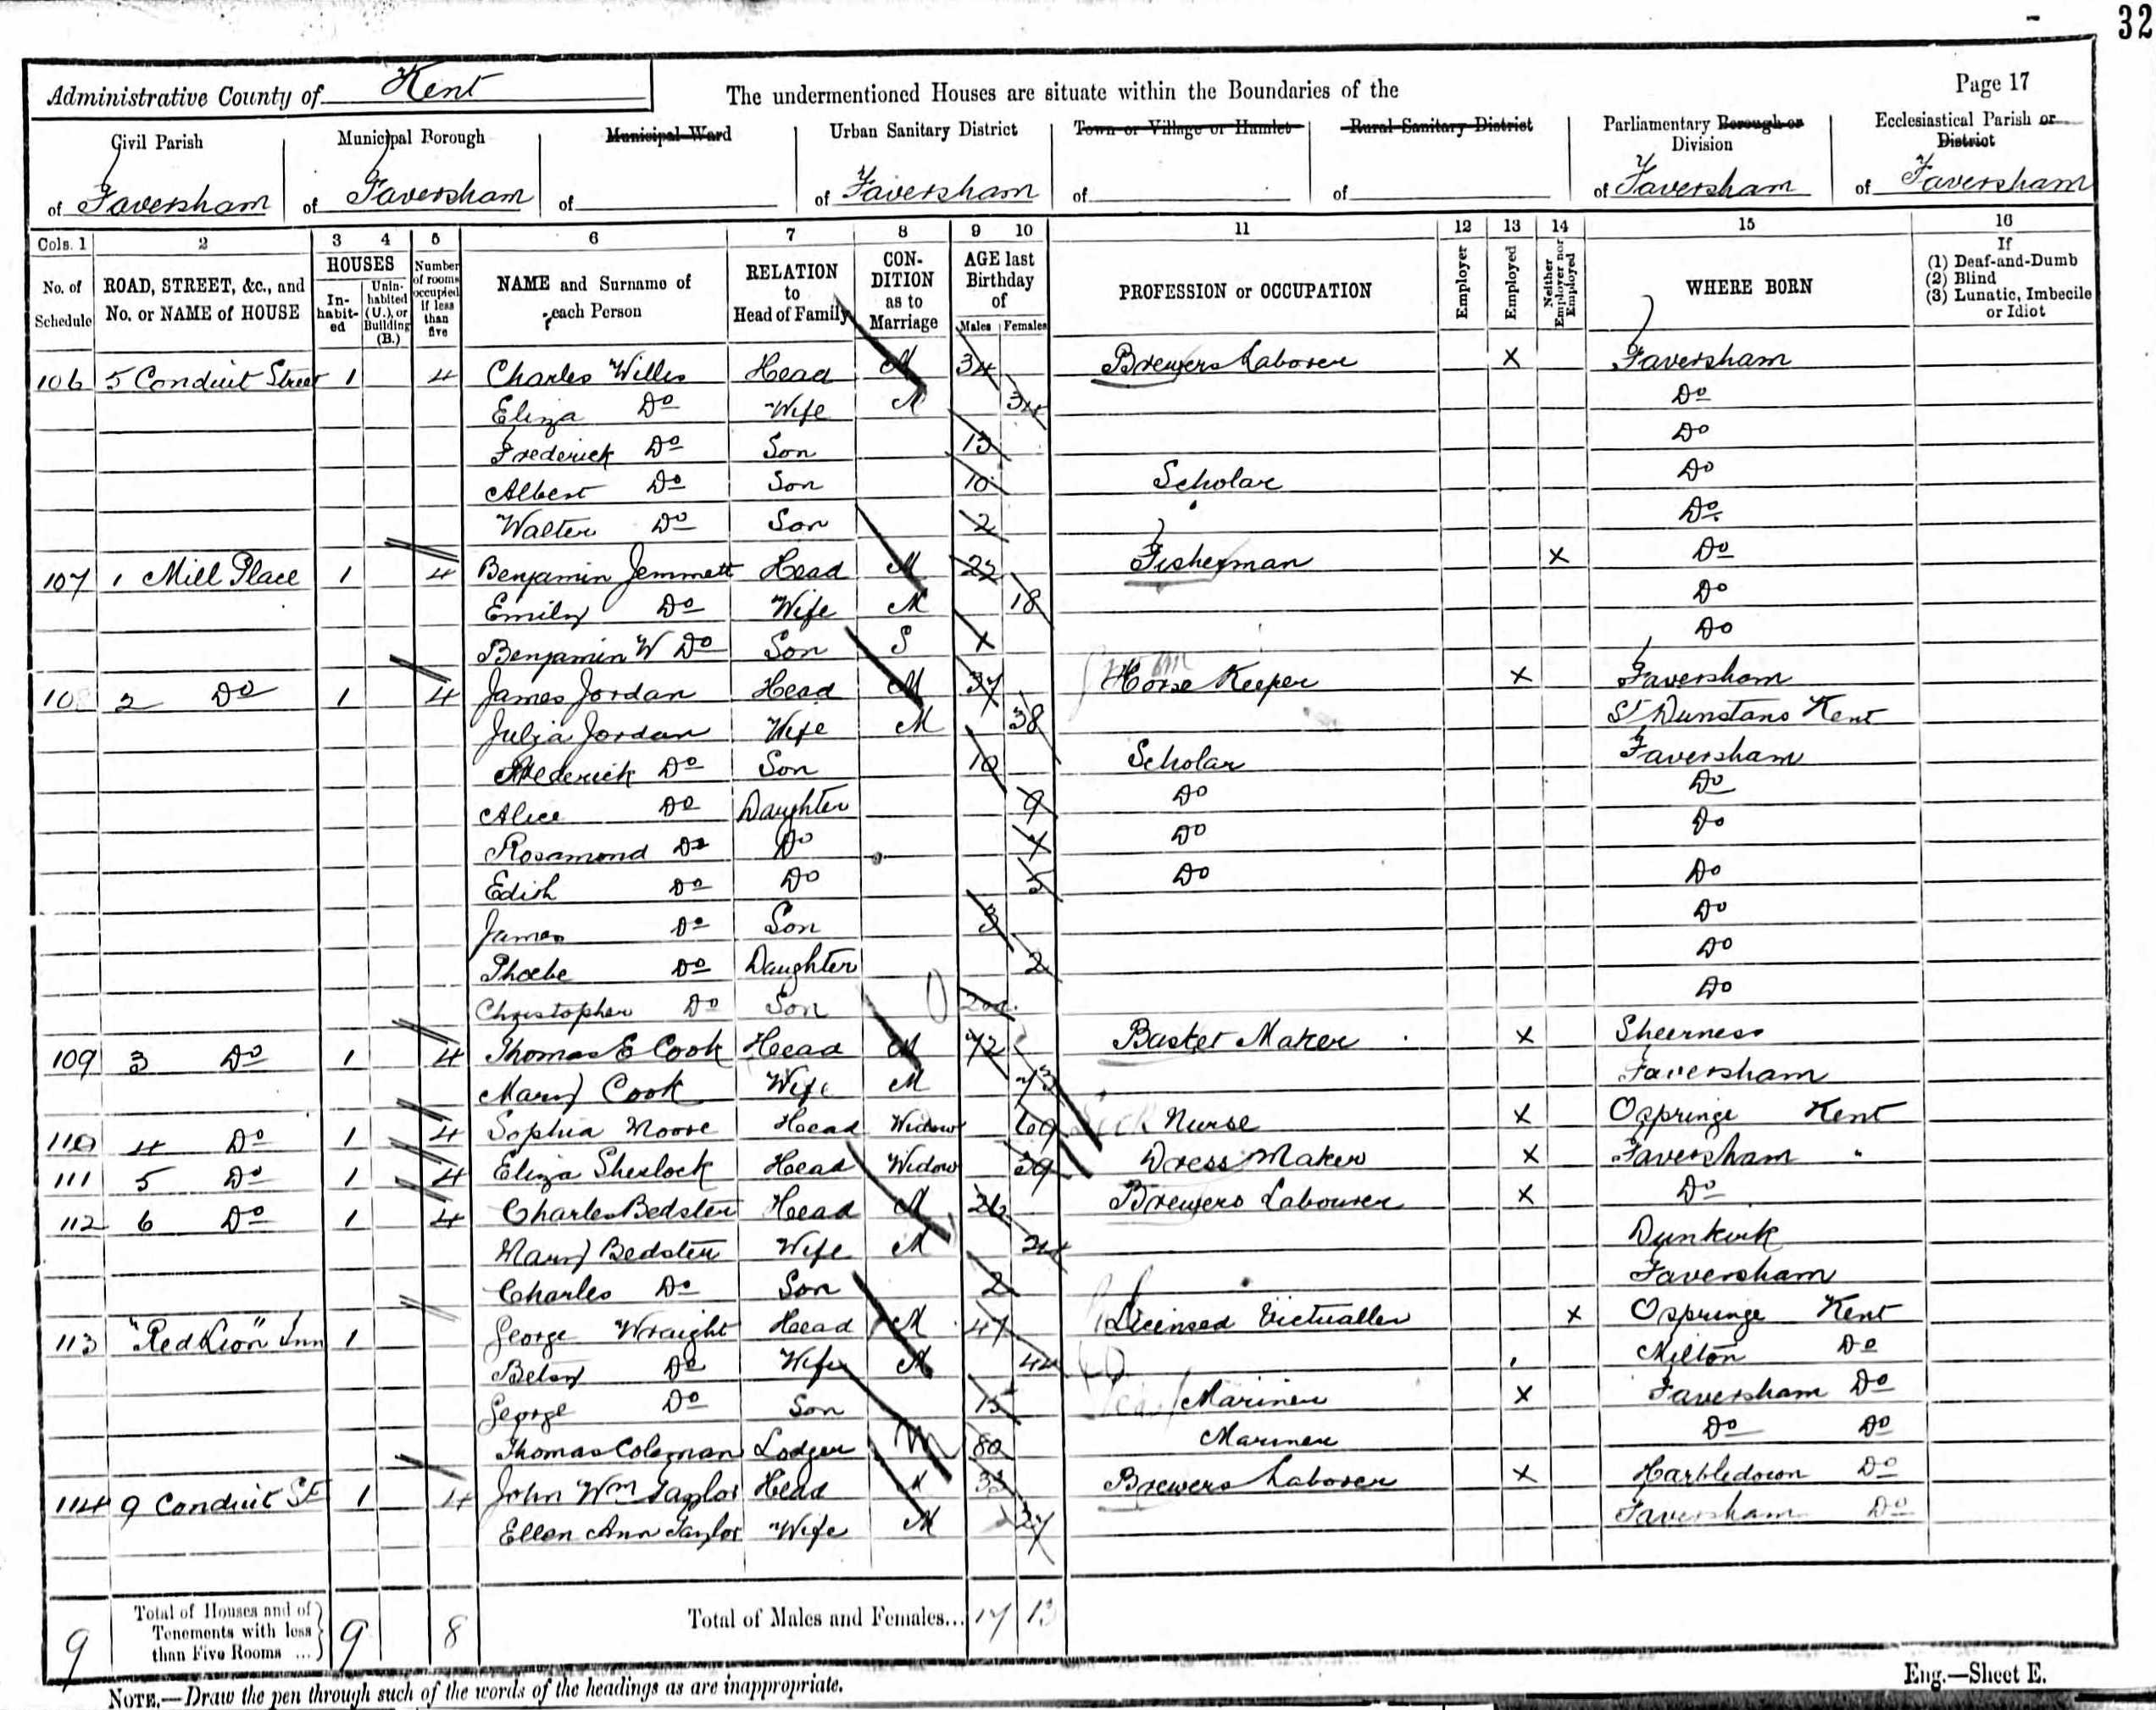 32
Administrative County of Kent
The undermentioned Houses are situate within the Boundaries of the
Page 17
Civil Parish of Faversham
Municipal Borough of Faversham
Municipal Ward of
Urban Sanitary District of Faversham
Town or Village or Hamlet of
Rural Sanitary District of
Parliamentary Borough or Division of Faversham
Ecclesiastical Parish or District of Faversham
Cols. 1 2 3 4 5 6 7 8 9 10 11 12 13 14 15 16
No. of Schedule
ROAD, STREET, &c., and No. or NAME of HOUSE
HOUSES
In-habit-ed
Unin-habited (U.), or Building (B.)
Number of rooms occupied if less than five
NAME and Surname of each Person
RELATION to Head of Family
CON-DITION as to Marriage
AGE last Birthday of
Males Females
PROFESSION or OCCUPATION
Employer
Employed
Neither Employer nor Employed
WHERE BORN
If
(1) Deaf-and-Dumb
(2) Blind
(3) Lunatic, Imbecile or Idiot
106 5 Conduit Street 1 4 Charles Willis Head M 34 Brewers Laborer X Faversham
Eliza Do Wife M 34 Do
Frederick Do Son 13 Do
Albert Do Son 10 Scholar Do
Walter Do Son 2 Do
107 1 Mill Place 1 4 Benjamin Jemmett Head M 22 Fisherman X Do
Emily Do Wife M 18 Do
Benjamin W Do Son S Do
10 2 Do 1 4 James Jordan Head M 37 Horse Keeper X Faversham
Julia Jordan Wife M 38 St Dunstans Kent
Frederick Do Son 10 Scholar Faversham
Alice Do Daughter 9 Do Do
Rosamond Do Do 7 Do Do
Edith Do Do 5 Do Do
James Do Son 3 Do
Phoebe Do Daughter 2 Do
Christopher Do Son Do
109 3 Do 1 4 Thomas E Cook Head M 72 Basket Maker X Sheerness
Mary Cook Wife M 73 Faversham
110 4 Do 1 4 Sophia Moore Head Widow 69 Sick Nurse X Ospringe Kent
111 5 Do 1 4 Eliza Sherlock Head Widow 39 Dress Maker X Faversham "
112 6 Do 1 4 Charles Bedster Head M 26 Brewers Labourer X Do
Mary Bedster Wife M 24 Dunkirk
Charles Do Son 2 Faversham
113 "Red Lion" Inn 1 George Wraight Head M 47 Licensed Victualler X Ospringe Kent
Betsy Do Wife M 44 Milton Do
George Do Son 15 Mariner X Faversham Do
Thomas Coleman Lodger M 80 Mariner Do Do
114 9 Conduit St 1 4 John Wm Taylor Head M 33 Brewers Laborer X Harbledown Do
Ellen Ann Taylor Wife M 27 Faversham Do
9 Total of Houses and of Tenements with less than Five Rooms ... 9 8 Total of Males and Females... 17 13
Eng.—Sheet E.
NOTE.—Draw the pen through such of the words of the headings as are inappropriate.